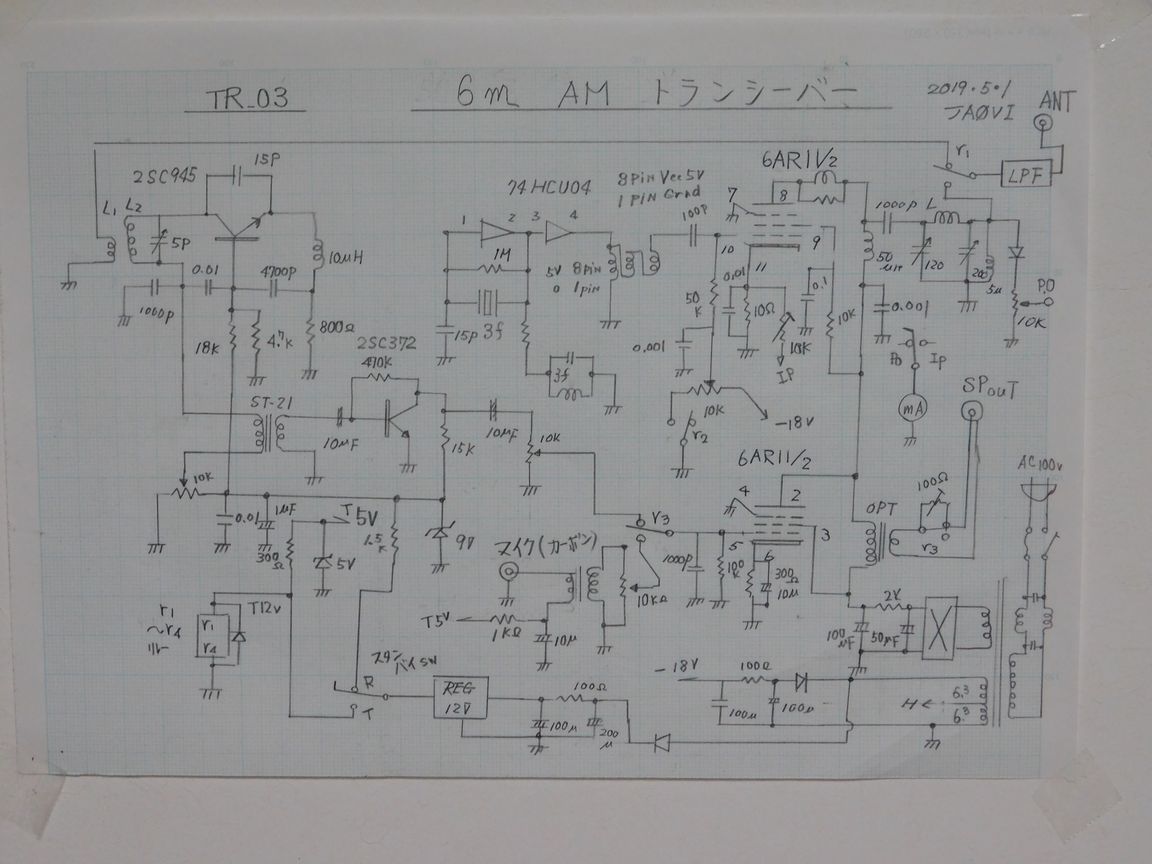 TR-03
6m AM トランシーバー
2019.5.1
JA0VI
ANT
2SC945
15P
L1 L2
5P
10μH
0.01
4700P
1000P
18K
4.7K
800Ω
74HCU04
8Pin Vcc 5V
1 PIN Grnd
1
2
3
4
1M
5V 8pin
0 1pin
3f
15P
3f
100P
6AR11/2
7
8
9
10
11
50K
0.01
10Ω
0.1
10K
10K
IP
0.001
10K
r2
-18V
r1
LPF
1000P
L
50μH
120
200
5μ
0.001
PO
10K
Po
Ip
mA
SP OUT
2SC372
470K
ST-21
10μF
15K
10μF
10K
10K
0.01
1μF
300Ω
T 5V
5V
1.5K
9V
T12V
r1
～r4
リレー
r1
r4
スタンバイSW
R
T
REG
12V
100Ω
100μ
200μ
マイク(カーボン)
T5V
1KΩ
10μ
10KΩ
r3
1000P
100K
6AR11/2
4
2
3
5
6
300Ω
10μ
OPT
100Ω
r3
AC100V
2K
100μF
50μF
-18V
100Ω
100μ
100μ
H
6.3
6.3